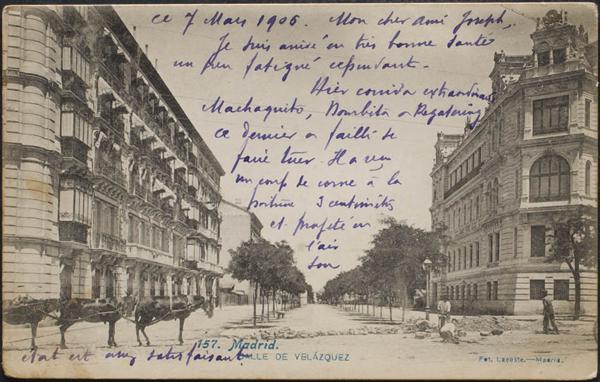 ce 7 Mars 1906. Mon cher ami Joseph,
Je suis arrivé en très bonne santé
un peu fatigué cependant.
Hier corrida extraordinaire
Machaquito, Bombita
ce dernier a failli se
faire tuer. Il a reçu
un coup de corne à la
poitrine 3 centimètres
et projeté en
l'air
son
état est assez satisfaisant
157. Madrid.
CALLE DE VELÁZQUEZ
Fot. Lacoste.—Madrid.